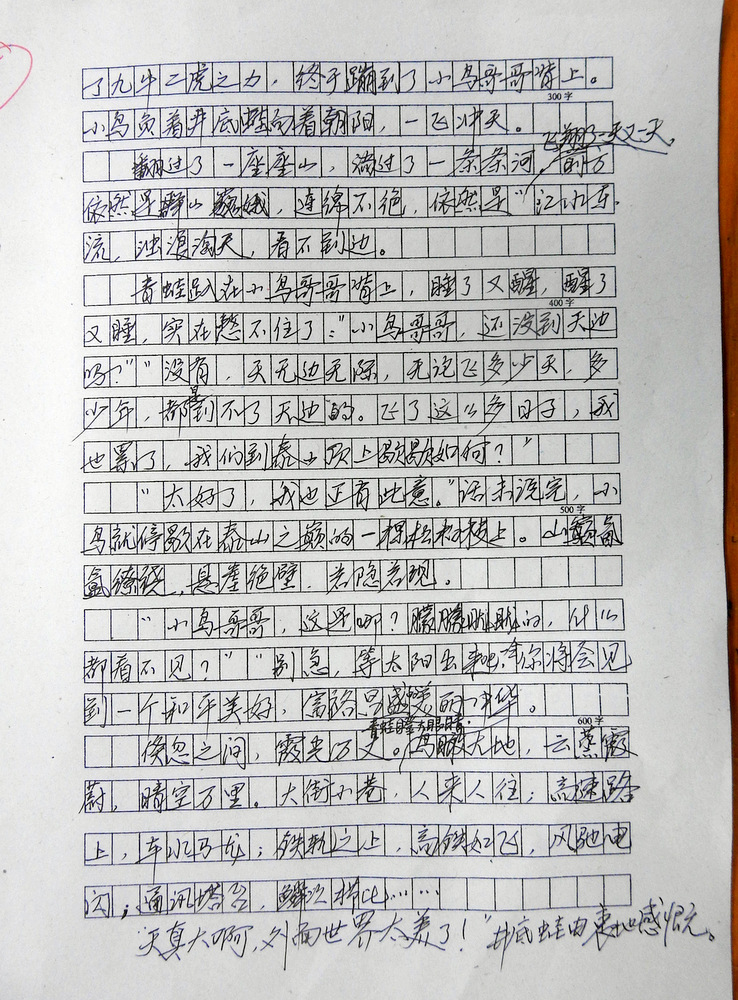 了九牛二虎之力，终于蹦到了小鸟哥哥背上。
300字
小鸟负着井底蛙向着朝阳，一飞冲天。
飞翔了一天又一天。
翻过了一座座山，淌过了一条条河，前方
依然是群山巍峨，连绵不绝，依然是"江水东
流，浊浪淘天，看不到边。
青蛙趴在小鸟哥哥背上，睡了又醒，醒了
400字
又睡，实在憋不住了："小鸟哥哥，还没到天边
吗？""没有，天无边无际，无论飞多少天，多
少年，都到不了天边的。飞了这么多日子，我
也累了，我们到泰山顶上歇歇如何？"
"太好了，我也正有此意。"话未说完，小
500字
鸟就停歇在泰山之巅的一棵松树枝上。山巅氤
氲缭绕，悬崖绝壁，若隐若现。
"小鸟哥哥，这是哪？朦朦胧胧的，什么
都看不见？""别急，等太阳出来吧，你将会见
到一个和平美好，富路昌盛美丽中华。
青蛙瞪大眼睛，
600字
倏忽之间，霞光万丈。鸟瞰大地，云蒸霞
蔚，晴空万里。大街小巷，人来人往；高速路
上，车水马龙；铁轨之上，高铁如飞，风驰电
闪；通讯塔台，鳞次栉比……
"天真大啊，外面世界太美了！"井底蛙由衷地感慨。